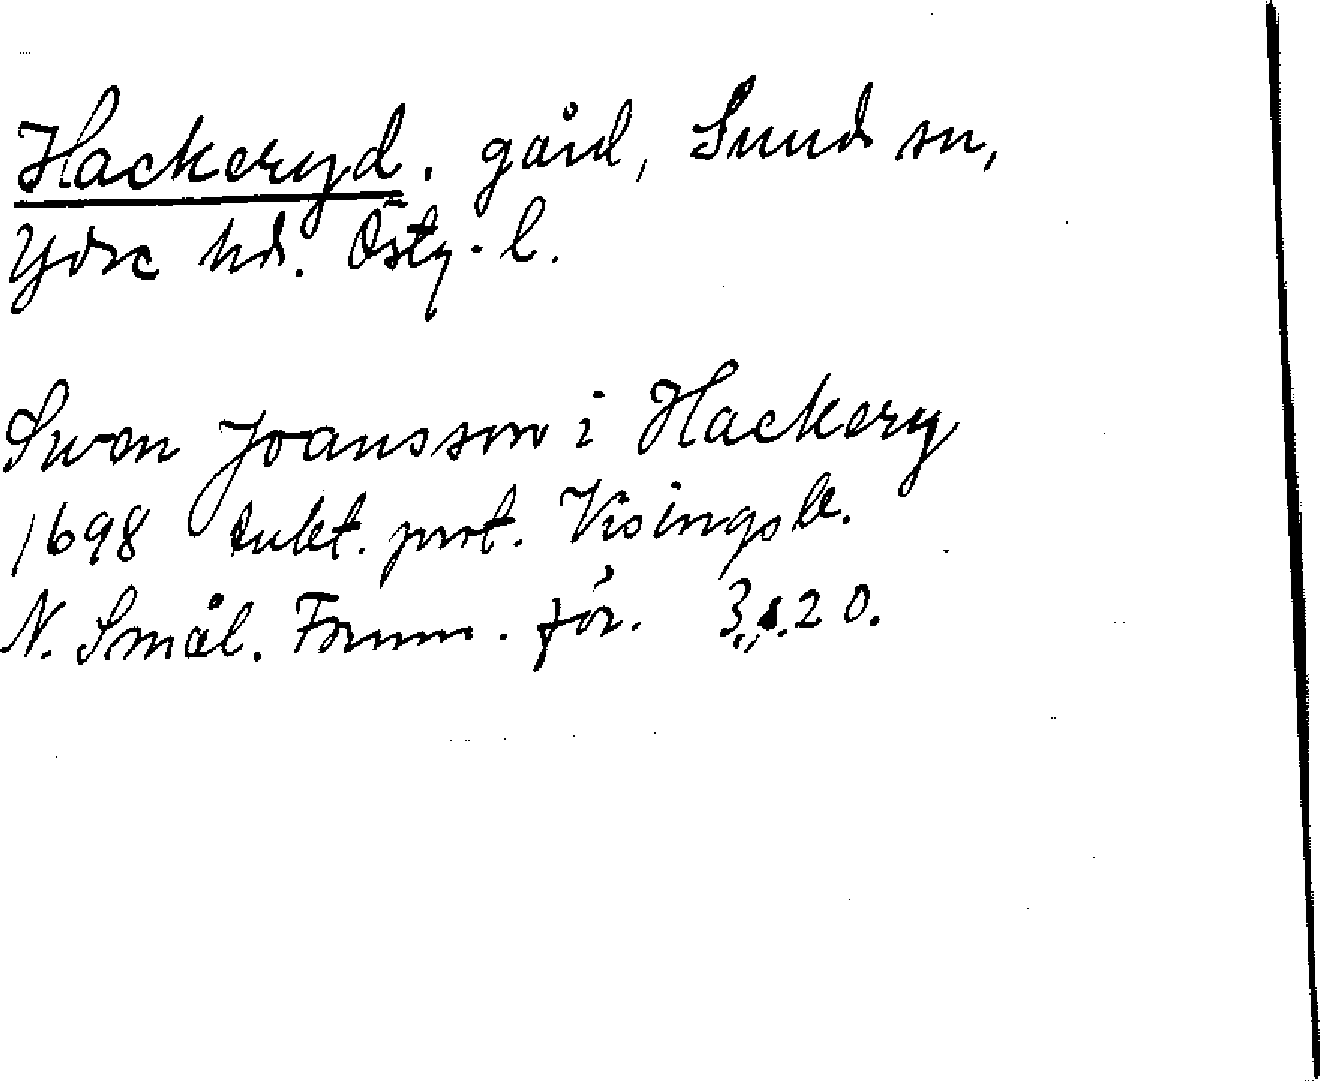 Hackeryd. gård, Sund sn,
Ydre hd. Östg. l.
Swen Joansson i Hackery
1698 Dubt. prot. Visingsb.
N. Smål. Fornm. för. 3,,.20.